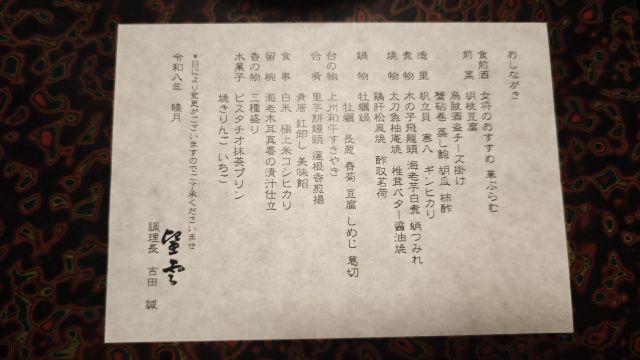 おしながき
食前酒 女将のおすすめ 巣ぷらむ
前菜 胡桃豆腐
烏賊酒盗チーズ掛け
蟹砧巻 蒸し鮑 胡瓜 柿酢
造里 帆立貝 寒八 ギンヒカリ
煮物 木の子飛龍頭 海老芋白煮 蛸つみれ
焼物 太刀魚柚庵焼 椎茸バター醤油焼
鶏肝松風焼 酢取茗荷
鍋物 牡蠣鍋
牡蠣 長葱 春菊 豆腐 しめじ 葛切
台の物 上州和牛すきやき
合肴 里芋餅饅頭 蓮根香煎揚
黄唐 紅卸し 美味餡
食事 白米 極上米コシヒカリ
留椀 海老木耳真薯の清汁仕立
香の物 三種盛り
水菓子 ピスタチオ抹茶プリン
焼きりんご いちご
＊日により変更がございますのでご了承くださいませ
令和八年 睦月
望雲
調理長 古田 誠